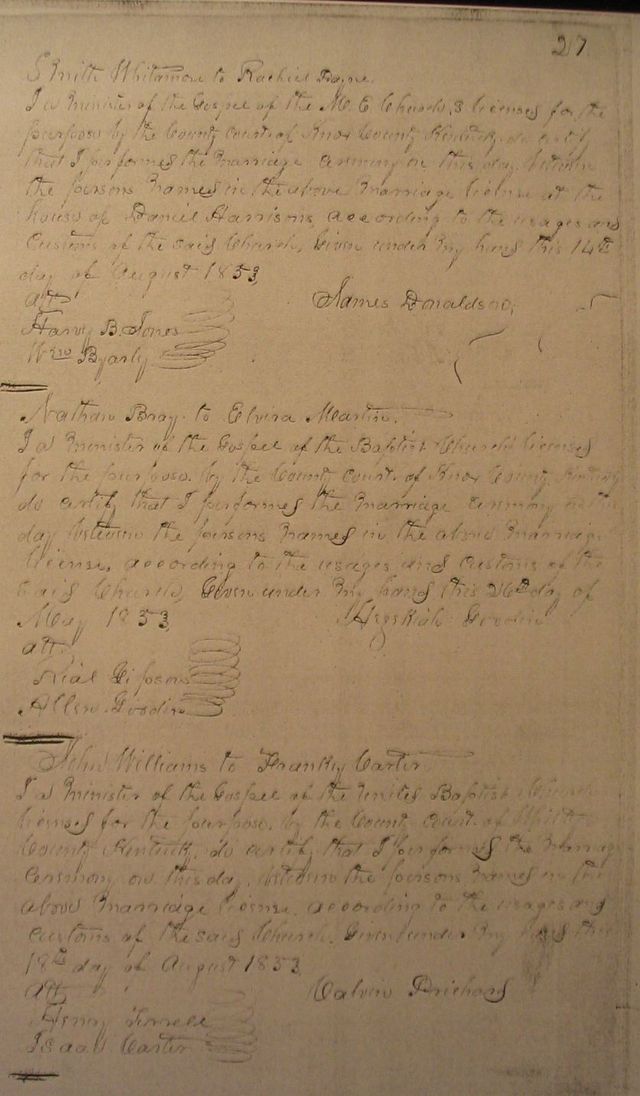 27
Smith Whitamore to Rachiel Payne
I a minister of the Gospel of the M. E. Church, & licensed for the
purpose by the County Court of Knox County Kentucky do certify
that I performed the marriage ceremony on this day between
the persons named in the above marriage license at the
house of Daniel Harrisons, according to the usages and
Customs of the said Church, Given under my hand this 14th
day of August 1853
Att
James Donaldson,
Harvy B. Jones
Wm Byarly
Nathan Bray to Elvira Martin.
I a minister of the Gospel of the Baptist Church licensed
for the purpose by the County Court of Knox County Kentucky
do certify that I performed the marriage ceremony on this
day between the persons named in the above marriage
license, according to the usages and customs of the
said Church, Given under my hand this 26th day of
May 1853
Hezekiah Goodin
att.
Neal Gipson
Allen Goodin
John Williams to Frankey Carter
I a minister of the Gospel of the United Baptist Church
licensed for the purpose, by the County Court of
County Kentucky, do certify that I performed the marriage
Ceremony on this day, between the persons named in the
above marriage license, according to the usages and
customs of the said Church. Given under my hand this
18th day of August 1853
Att
Calvin Prichard
Henry
Isaac Carter